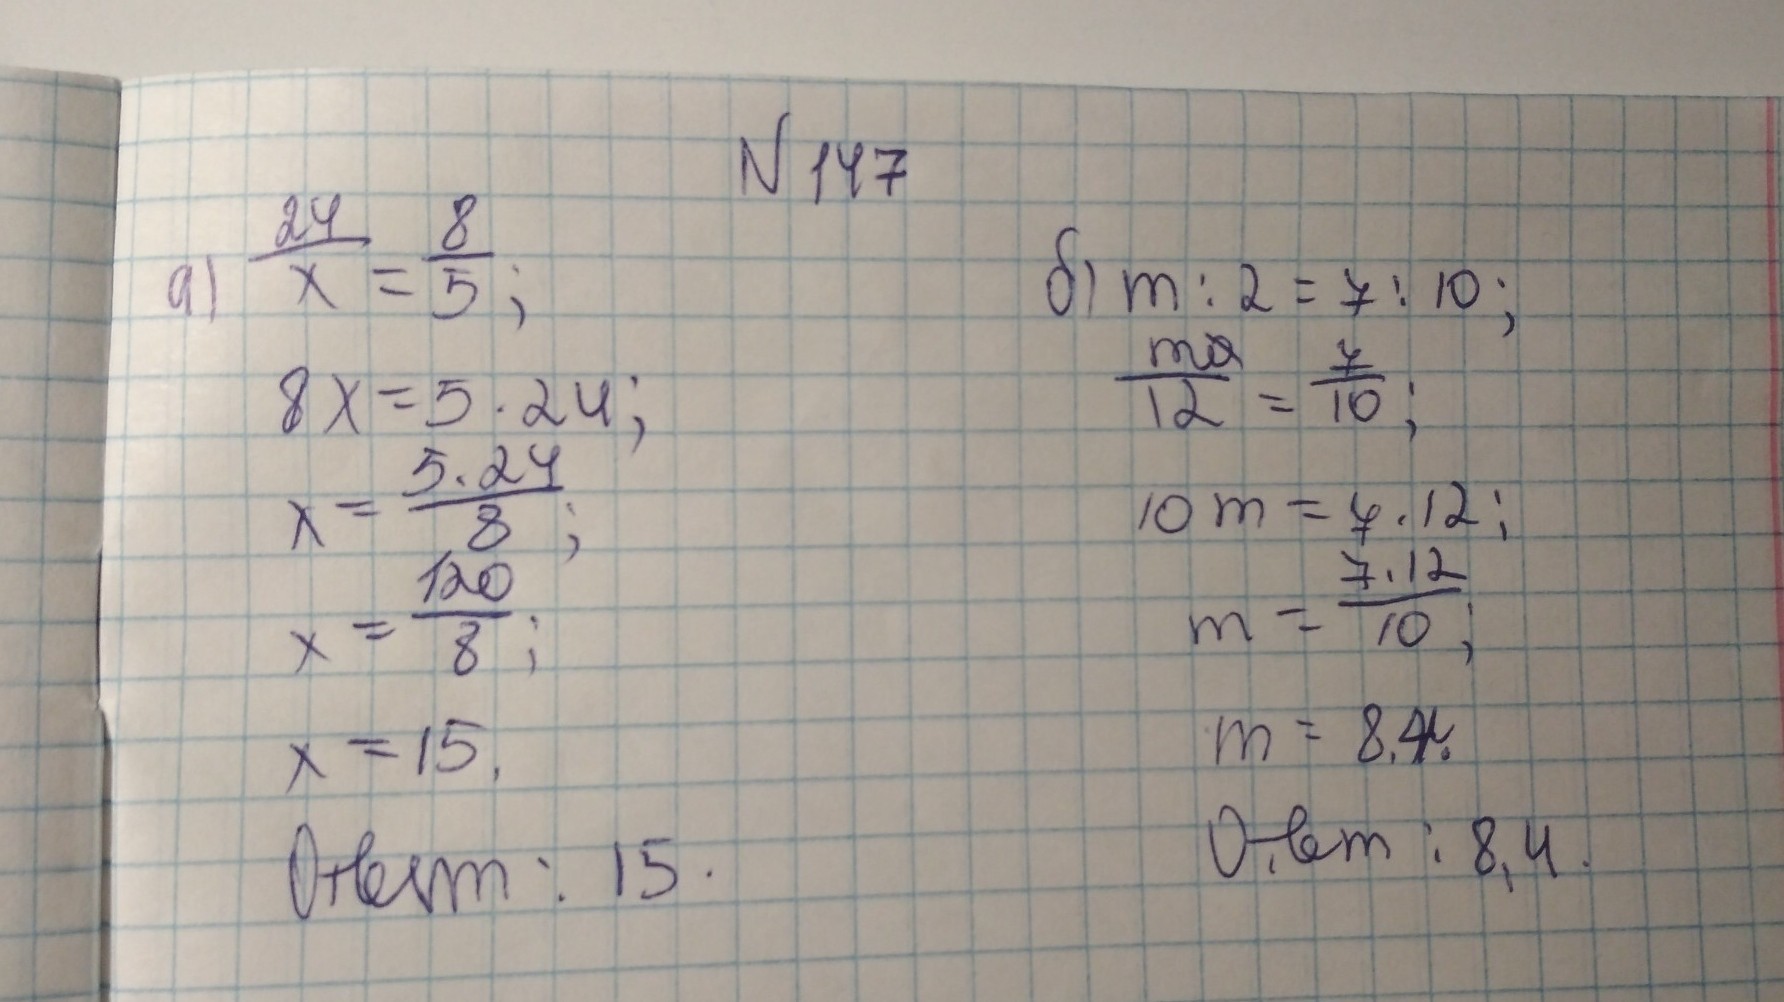 N 147
а) 24/x = 8/5;
8x = 5 · 24;
x = 5.24/8;
x = 120/8;
x = 15.
Ответ: 15.
б) m : 2 = 7 : 10;
m/12 = 7/10;
10 m = 7 . 12;
m = 7.12/10;
m = 8,4.
Ответ: 8,4.